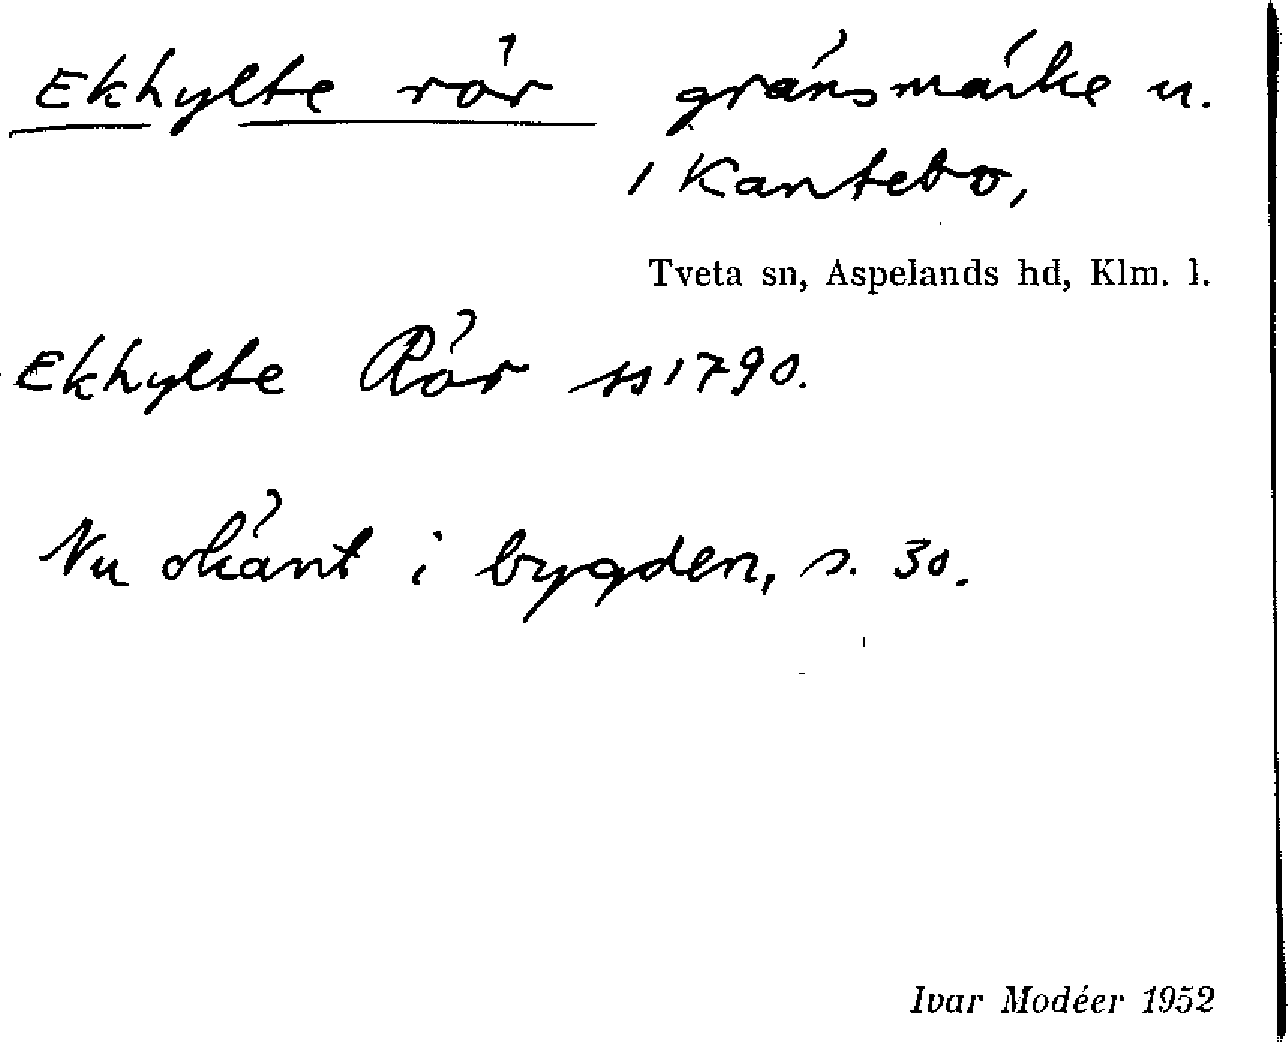 Ekhylte rör gränsmärke u.
1 Kantebo,
Tveta sn, Aspelands hd, Klm. l.
Ekhylte Rör ss 1790.
Nu okänt i bygden, s. 30.
Ivar Modéer 1952